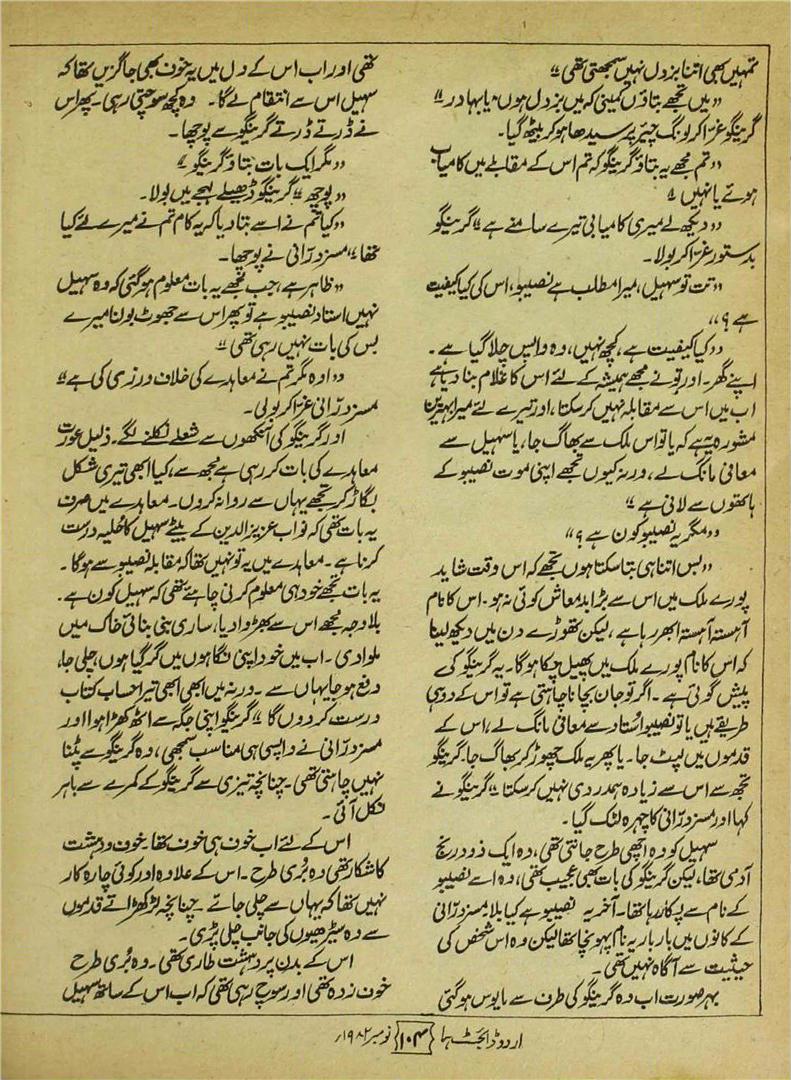 تمہیں کبھی اتنا بزدل نہیں سمجھتی تھی “
” میں تجھے بتاؤں کمینی کہ میں بزدل ہوں، یا بہادر “
گرینگو غرّا کر لونگ چیئر پر سیدھا ہو کر بیٹھ گیا۔
” تم مجھے یہ بتاؤ گرینگو کہ تم اس کے مقابلے میں کامیاب
ہوئے یا نہیں “
” دیکھ لے میری کامیابی تیرے سامنے ہے “ گرینگو
بدستور غرّا کر بولا۔
” تت تو سہیل، میرا مطلب ہے نصیبو، اس کی کیا کیفیت
ہے ؟ “
” کیا کیفیت ہے ، کچھ نہیں، وہ واپس چلا گیا ہے ۔
اپنے گھر۔ اور تو نے مجھے ہمیشہ کے لئے اس کا غلام بنا دیا ہے
اب میں اس سے مقابلہ نہیں کر سکتا، اور تیرے لئے میرا بہترین
مشورہ یہ ہے کہ یا تو اس ملک سے بھاگ جا، یا سہیل سے
معافی مانگ لے ، ورنہ کیوں تجھے اپنی موت نصیبو کے
ہاتھوں سے لانی ہے “
” مگر یہ نصیبو کون ہے ؟ “
” بس اتنا ہی بتا سکتا ہوں تجھے کہ اس وقت شاید
پورے ملک میں اس سے بڑا بدمعاش کوئی نہ ہو۔ اس کا نام
آہستہ آہستہ ابھر رہا ہے ، لیکن تھوڑے دن میں دیکھ لینا
کہ اس کا نام پورے ملک میں پھیل چکا ہوگا۔ یہ گرینگو کی
پیش گوئی ہے ۔ اگر تو جان بچانا چاہتی ہے تو اس کے دو ہی
طریقے ہیں یا تو نصیبو استاد سے معافی مانگ لے ، اس کے
قدموں میں لپٹ جا۔ یا پھر یہ ملک چھوڑ کر بھاگ جا، گرینگو
تجھ سے اس سے زیادہ ہمدردی نہیں کر سکتا “ گرینگو نے
کہا اور مسز درّانی کا چہرہ لٹک گیا۔
سہیل کو وہ اچھی طرح جانتی تھی ، وہ ایک زود رنج
آدمی تھا، لیکن گرینگو کی بات بھی عجیب تھی، وہ اسے نصیبو
کے نام سے پکار رہا تھا۔ آخر یہ نصیبو ہے کیا بلا، مسز درّانی
کے کانوں میں بار بار یہ نام پہونچا تھا لیکن وہ اس شخص کی
حیثیت سے آگاہ نہیں تھی ۔
بہر صورت اب وہ گرینگو کی طرف سے مایوس ہوگئی
تھی اور اب اس کے دل میں یہ خوف بھی جاگزیں تھا کہ
سہیل اس سے انتقام لے گا۔ وہ کچھ سوچتی رہی۔ پھر اس
نے ڈرتے ڈرتے گرینگو سے پوچھا۔
” مگر ایک بات بتاؤ گرینگو “
” پوچھ “ گرینگو ڈھیلے لہجے میں بولا۔
” کیا تم نے اسے بتا دیا کہ یہ کام تم نے میرے لئے کیا
تھا “ مسز درّانی نے پوچھا۔
” ظاہر ہے ، جب مجھے یہ بات معلوم ہوگئی کہ وہ سہیل
نہیں استاد نصیبو ہے تو پھر اس سے جھوٹ بولنا میرے
بس کی بات نہیں رہی تھی “
” اوہ مگر تم نے معاہدے کی خلاف ورزی کی ہے “
مسز درّانی غرّا کر بولی۔
اور گرینگو کی آنکھوں سے شعلے نکلنے لگے۔ ذلیل عورت
معاہدے کی بات کر رہی ہے مجھ سے، کیا ابھی تیری شکل
بگاڑ کر تجھے یہاں سے روانہ کروں۔ معاہدے میں صرف
یہ بات تھی کہ نواب عزیز الدین کے بیٹے سہیل کا حلیہ درست
کرنا ہے ۔ معاہدے میں یہ تو نہیں تھا کہ مقابلہ نصیبو سے ہوگا۔
یہ بات تجھے خود ہی معلوم کرنی چاہئے تھی کہ سہیل کون ہے ۔
بلا وجہ مجھے اس سے بھڑوا دیا، ساری بنی بنائی خاک میں
ملوا دی ۔ اب میں خود اپنی نگاہوں میں گر گیا ہوں، چلی جا،
دفع ہو جا یہاں سے ۔ ورنہ میں ابھی ابھی تیرا حساب کتاب
درست کر دوں گا “ گرینگو اپنی جگہ سے اٹھ کھڑا ہوا اور
مسز درّانی نے واپسی ہی مناسب سمجھی ، وہ گرینگو سے پٹنا
نہیں چاہتی تھی ۔ چنانچہ تیزی سے گرینگو کے کمرے سے باہر
نکل آئی ۔
اس کے لئے اب خوف ہی خوف تھا۔ خوف و دہشت
کا شکار تھی وہ بُری طرح ۔ اس کے علاوہ اور کوئی چارہ کار
نہیں تھا کہ یہاں سے چلی جائے ۔ چنانچہ لڑکھڑاتے قدموں
سے وہ سیڑھیوں کی جانب چل پڑی۔
اس کے بدن پر دہشت طاری تھی ۔ وہ بُری طرح
خوف زدہ تھی اور سوچ رہی تھی کہ اب اس کے ساتھ سہیل
اردو ڈائجسٹ ہما {۱۰۴} نومبر ۱۹۸۲ء